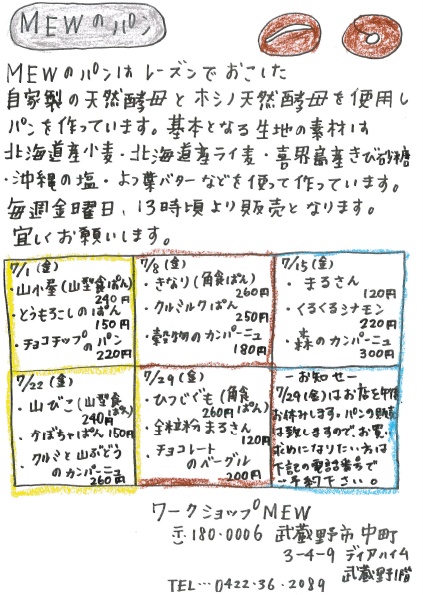 MEWのパン
MEWのパンはレーズンでおこした
自家製の天然酵母とホシノ天然酵母を使用し
パンを作っています。基本となる生地の素材は
北海道産小麦・北海道産ライ麦・喜界島産きび砂糖
・沖縄の塩・よつ葉バターなどを使って作っています。
毎週金曜日、13時頃より販売となります。
宜しくお願いします。
7/1(金)
・山小屋(山型食ぱん)
240円
・とうもろこしのぱん
150円
・チョコチップのパン
220円
7/8(金)
・きなり(角食ぱん)
260円
・クルミルクぱん
250円
・穀物のカンパーニュ
180円
7/15(金)
・まるさん
120円
・くるくるシナモン
220円
・森のカンパーニュ
300円
7/22(金)
・山びこ(山型食ぱん)
240円
・かぼちゃぱん 150円
・クルミと山ぶどう
のカンパーニュ
260円
7/29(金)
・ひつじぐも(角食ぱん)
260円
・全粒粉まるさん
120円
・チョコレート
のベーグル
200円
-お知せ-
7/29(金)はお店を午後
お休みします。パンの販売
は致しますので、お買い
求めになりたい方は
下記の電話番号で
ご予約下さい。
ワークショップMEW
〒180-0006 武蔵野市中町
3-4-9 ディアハイム
武蔵野1階
TEL…0422・36・2089